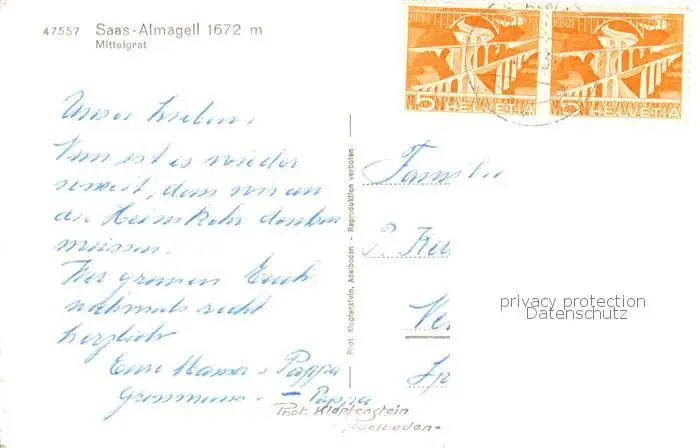 47557 Saas-Almagell 1672 m
Mittelgrat
5 HELVETIA 5 HELVETIA
Unser Lieben,
Nun ist es wieder
soweit, dass wir an
die Heimkehr denken
müssen.
Wir grüssen Euch
nochmals recht
herzlich
Eure Mama + Pappa
Grossmama - Pappa
Phot. Klopfenstein, Adelboden - Reproduktion verboten
Familie
P.
privacy protection
Datenschutz
Phot. Klopfenstein
Adelboden-